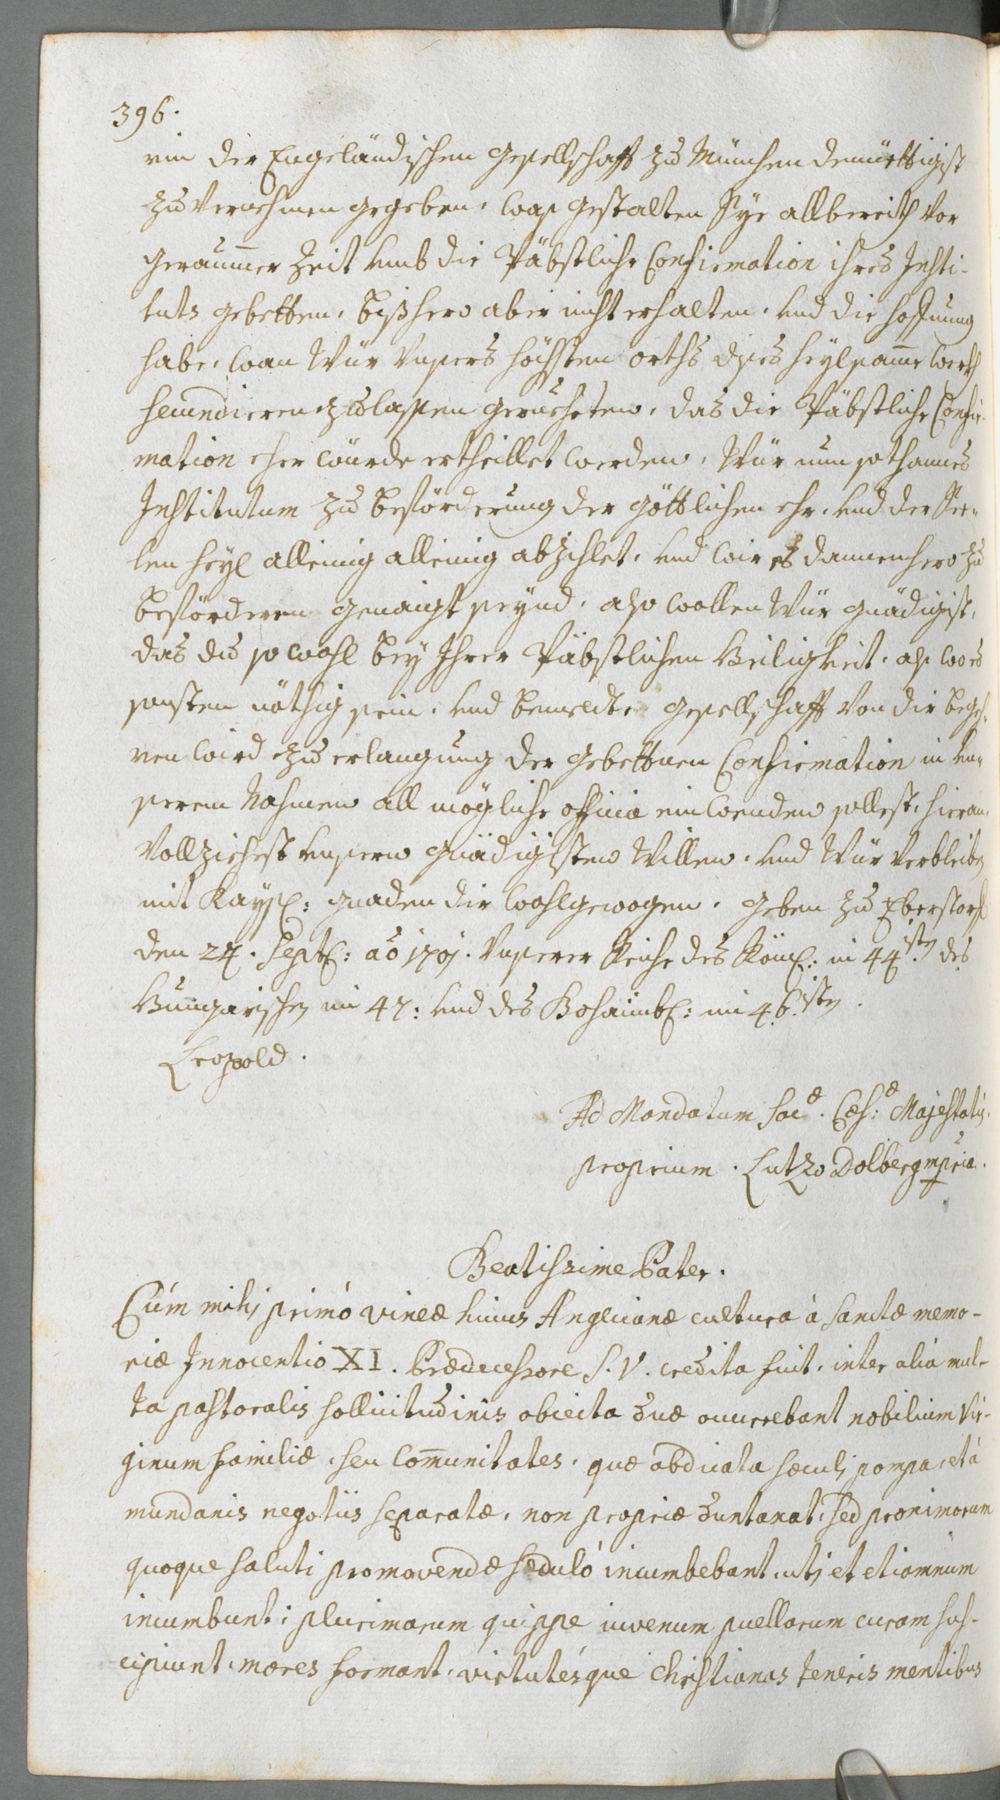 396.
rin der Engeländischen Gesellschafft zu München demüttigist
zu Vernehmen gegeben, was gestalten Sye allbereith vor
geraummer Zeit umb die Päbstliche Confirmation ihres Insti-
tuts gebetten, bißhero aber nicht erhalten, und die hoffnung
habe, wan Wür Unsers höchsten orths dises heylsamme werkh
secundieren zulassen geruheten, das die Päbstliche Confir-
mation eher würde ertheillet werden, Wür nun sothannes
Institutum zu beförderung der Göttlichen ehr, und der See-
len heyl alleinig alleinig abzihlet, und wir es dannenhero zu
beförderen genaigt seynd, also wollen Wür gnädigist,
das du so wohl bey Ihrer Päbstlichen Heiligkeit, als wo es
sonsten nöthig sein, und bemelte gesellschafft von dir bege-
ren wird zu erlangung der gebettnen Confirmation in Un-
serem Nahmen all mögliche officia einwenden sollest, hieran
Vollziehest unsern gnädigisten Willen, und Wür Verbleiben
mit Kaysl: gnaden dir wohlgewogen. Geben zu Eberstorff
den 24. Septl: aō 1701. Unserer Reiche des Röml: in 44isten des
Hungarischen im 47: und des Bohaimbl: im 46isten.
Leopold.
Ad Mandatum Sacæ. Cæs:æ Majestatis
proprium. Lutzo Dolberg mpria.
Beatissime Pater.
Cúm mihi primò vineæ huius Anglicanæ cultura à sanctæ memo-
riæ Innocentio XI. Prædecessore S. V. credita fuit, inter alia mul-
ta pastoralis sollicitudinis obiecta duæ occurrebant nobilium Vir-
ginum familiæ, seu Com̄unitates, quæ abdicata sæculi pompa, et à
mundanis negotiis separatæ, non propriæ duntaxat, sed proximorum
quoque saluti promovendæ sedulò incumbebant, uti et etiamnum
incumbunt; plurimarum quippe iuvenum puellarum curam sus-
cipiunt, mores formant, virtutésque Christianas teneris mentibus